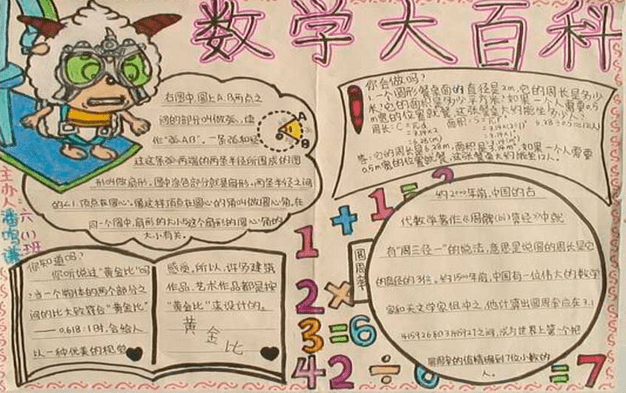 数学大百科
右图中,圆上A、B两点之
间的部分叫做弧,读
作"弧AB",一条弧和经
过这条弧两端的两条半径所围成的图
形叫做扇形,图中涂色部分就是扇形,两条半径之间
的∠1,顶点在圆心,像这样顶点在圆心的角叫做圆心角,在
同一个圆中,扇形的大小与这个扇形的圆心角的
大小有关。
A
B
你会做吗?
1.一个圆形餐桌面的直径是2m,它的周长是多少
米?它的面积是多少平方米?如果一个人需要0.5
m宽的位置就餐,这张餐桌大约能坐多少人?
答:它的周长是6.28m,面积是3.14m²,如果一个人需要
0.5m宽的位置就餐,这张餐桌大约能坐12人。
主办人:六(1)班
你知道吗?
你听说过"黄金比"吗
?当一个物体的两个部分之
间的比大致符合"黄金比"
——0.618:1时,会给人
以一种优美的视觉
感受,所以,许多建筑
作品、艺术作品都是按
"黄金比"来设计的。
黄金比
1+1=2
2×
3=6
42÷6=7
圆周率
约2000年前,中国的古
代数学著作《周髀算经》中就
有"周三径一"的说法,意思是说圆的周长是它
的直径的3倍。约1500年前,中国有一位伟大的数学
家和天文学家祖冲之,他计算出圆周率应在3.1
415926和3.1415927之间,成为世界上第一个把
圆周率的值精确到7位小数的
人。